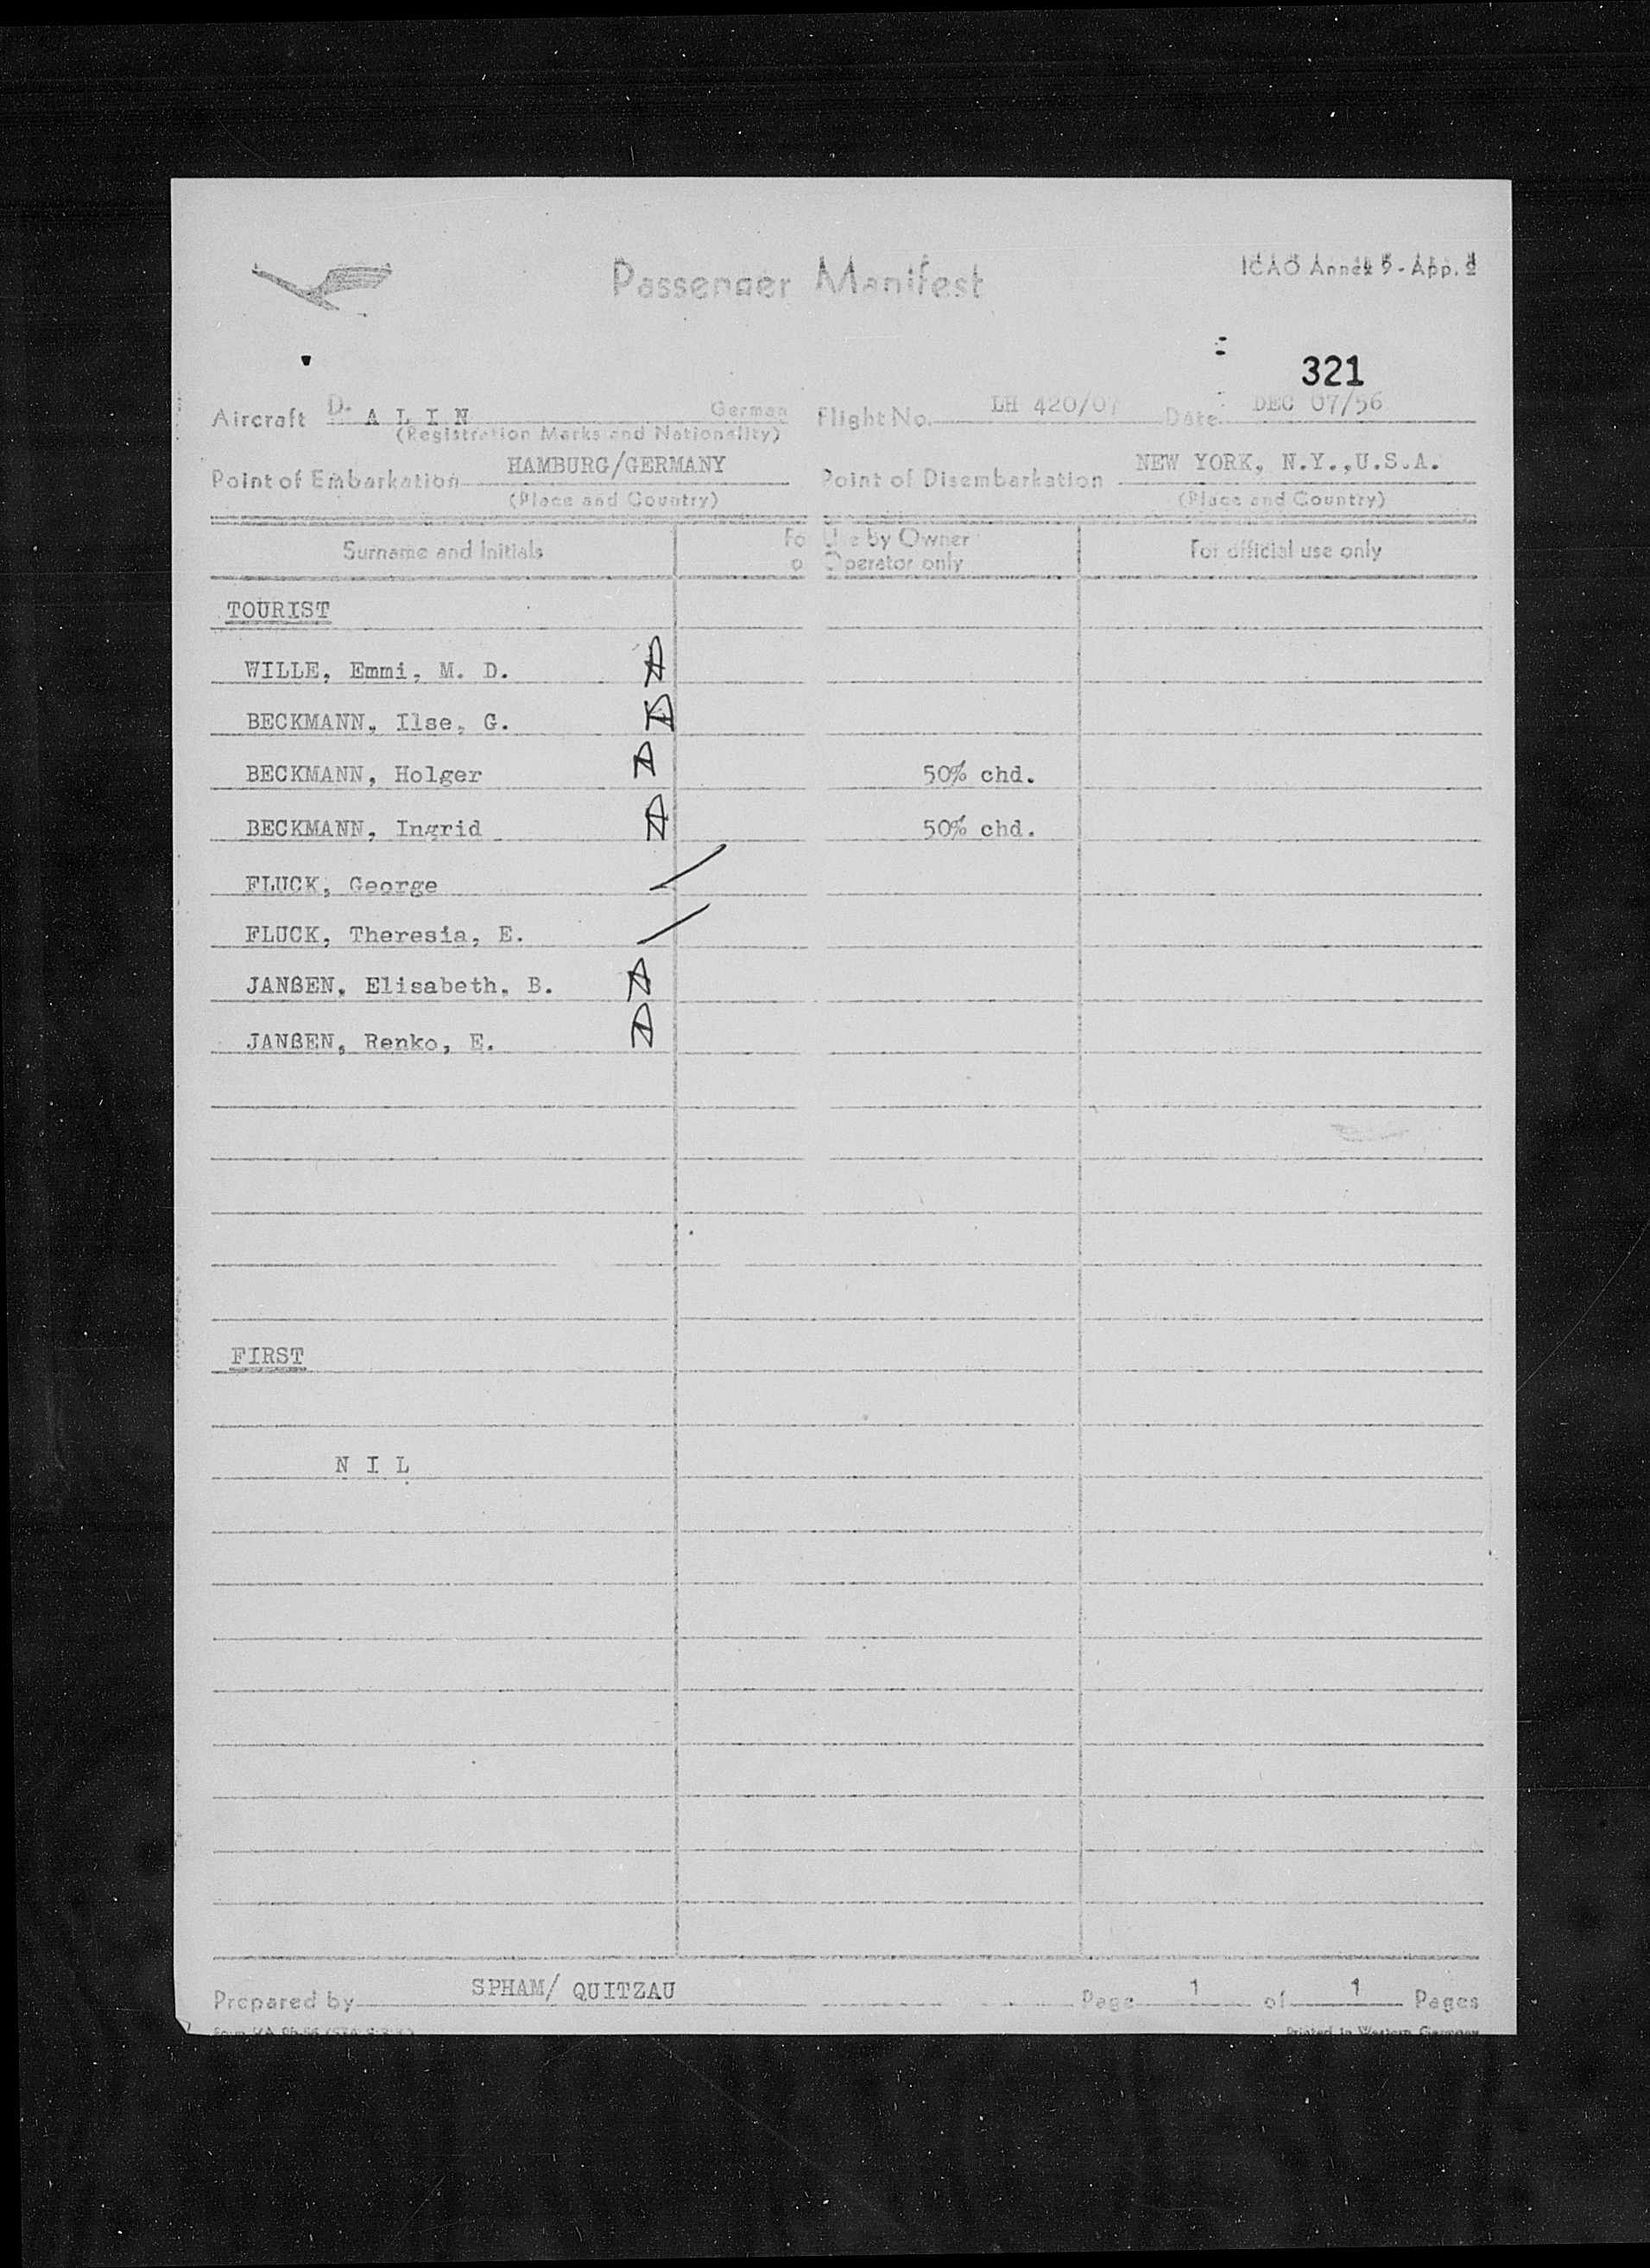 Passenger Manifest
ICAO Annex 9 - App. 2
321
Aircraft D- A L I N German
(Registration Marks and Nationality)
Flight No. LH 420/07 Date DEC 07/56
Point of Embarkation HAMBURG/GERMANY
(Place and Country)
Point of Disembarkation NEW YORK, N.Y.,U.S.A.
(Place and Country)
Surname and Initials
Fo Use by Owner
o Operator only
For official use only
TOURIST
WILLE, Emmi, M. D.
BECKMANN, Ilse, G.
BECKMANN, Holger 50% chd.
BECKMANN, Ingrid 50% chd.
FLUCK, George
FLUCK, Theresia, E.
JANßEN, Elisabeth, B.
JANßEN, Renko, E.
FIRST
N I L
Prepared by SPHAM/ QUITZAU Page 1 of 1 Pages
Printed in Western Germany